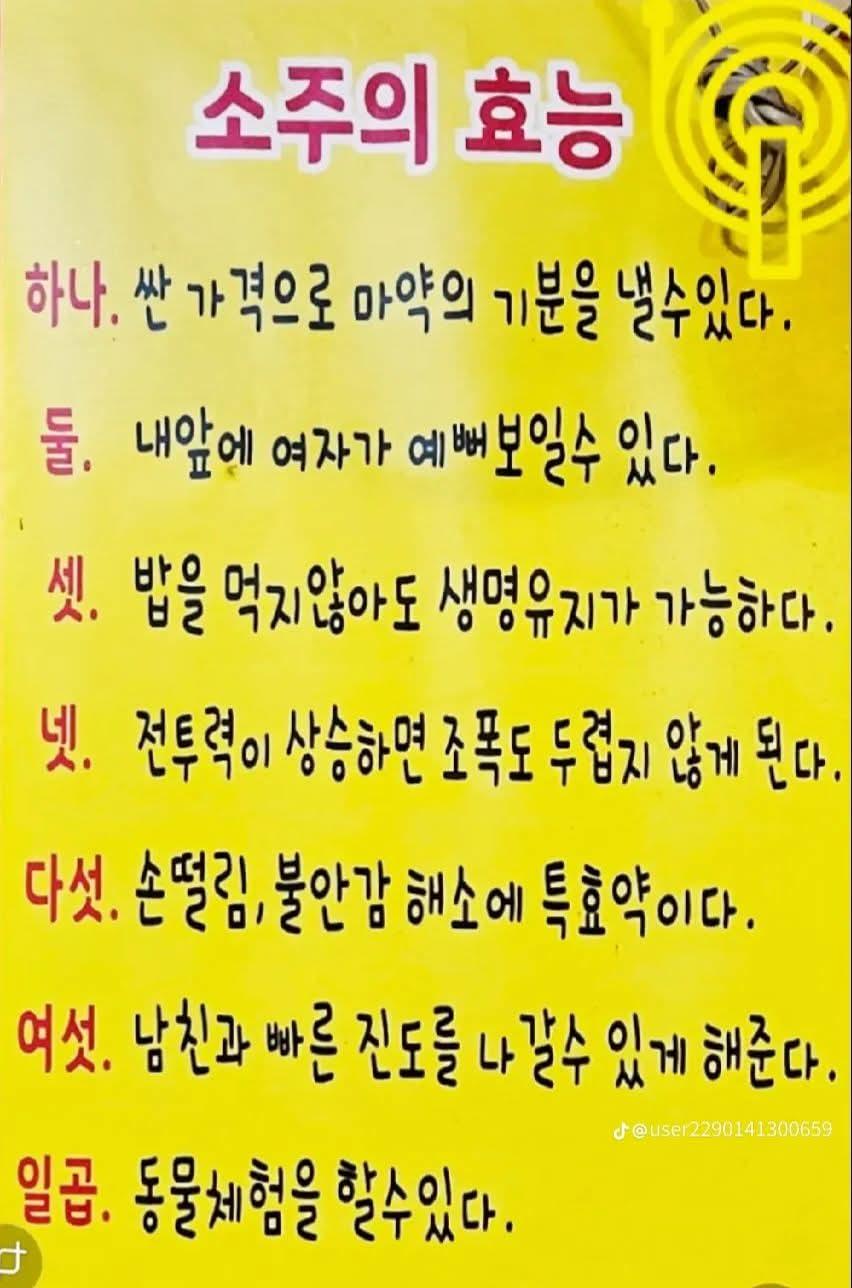 소주의 효능
하나. 싼 가격으로 마약의 기분을 낼수있다.
둘. 내앞에 여자가 예뻐보일수 있다.
셋. 밥을 먹지않아도 생명유지가 가능하다.
넷. 전투력이 상승하면 조폭도 두렵지 않게 된다.
다섯. 손떨림, 불안감 해소에 특효약이다.
여섯. 남친과 빠른 진도를 나갈수 있게 해준다.
@user2290141300659
일곱. 동물체험을 할수있다.